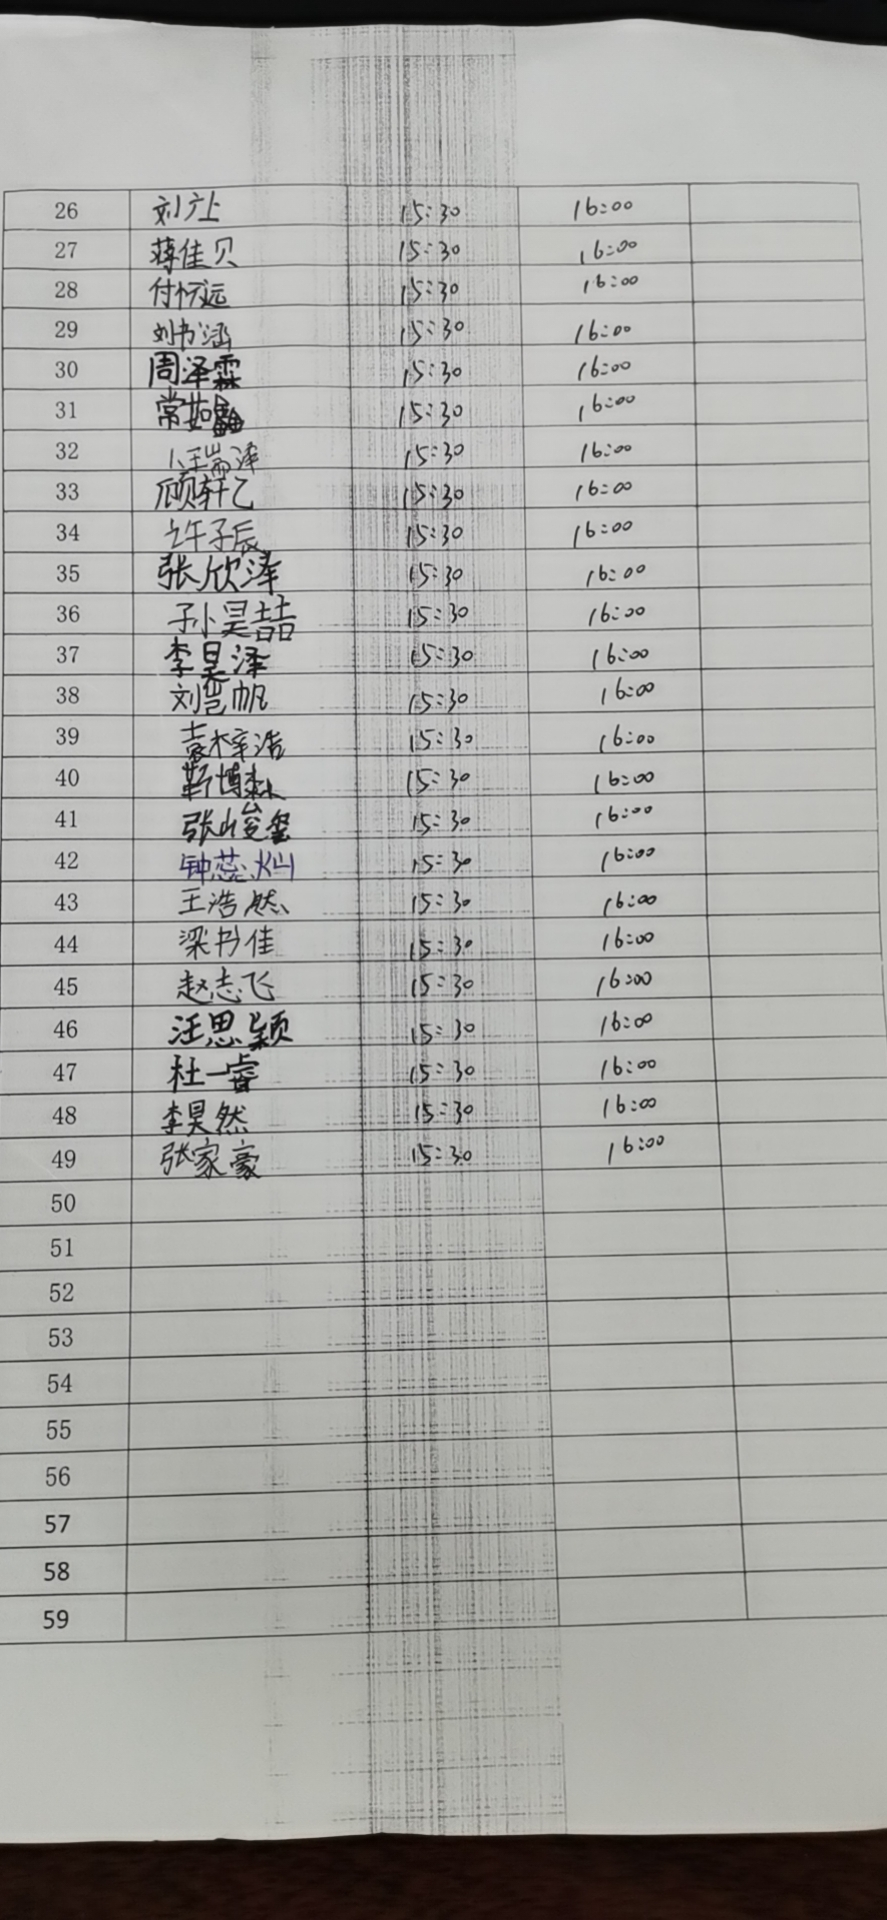 26 刘广上 15:30 16:00
27 蒋佳贝 15:30 16:00
28 付怀远 15:30 16:00
29 刘书涵 15:30 16:00
30 周泽霖 15:30 16:00
31 常茹 15:30 16:00
32 瑞泽 15:30 16:00
33 顾轩乙 15:30 16:00
34 许子辰 15:30 16:00
35 张欣泽 15:30 16:00
36 孙昊喆 15:30 16:00
37 李昊泽 15:30 16:00
38 刘岂帆 15:30 16:00
39 袁梓浩 15:30 16:00
40 靳博 15:30 16:00
41 张峻玺 15:30 16:00
42 钟蕊灿 15:30 16:00
43 王浩然 15:30 16:00
44 梁书佳 15:30 16:00
45 赵志飞 15:30 16:00
46 汪思颖 15:30 16:00
47 杜一睿 15:30 16:00
48 李昊然 15:30 16:00
49 张家豪 15:30 16:00
50
51
52
53
54
55
56
57
58
59